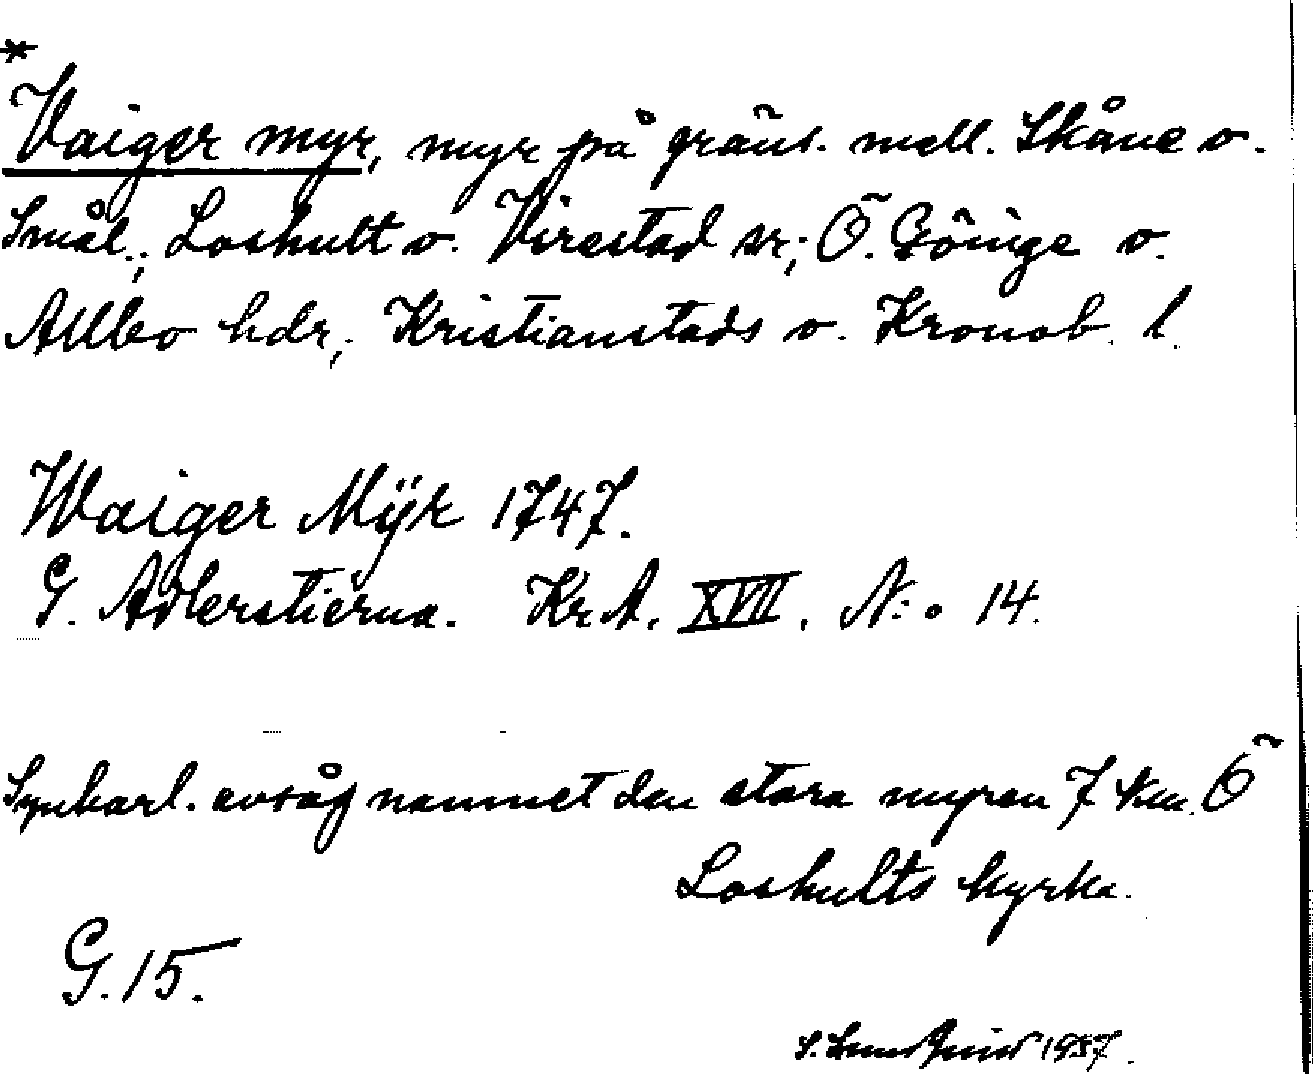 *
Vaiger myr, myr på gräns. mell. Skåne o.
Smål.; Loshult o. Virestad sr; Ö. Göinge o.
Allbo hdr; Kristianstads o. Kronob. l.
Waiger Mÿr 1747.
G. Adlerstierna. Kr.A. XVII. N:o 14.
Synbarl. avsåg namnet den stora myren 7 km. Ö
Loshults kyrka.
G.15.
S. 1957.